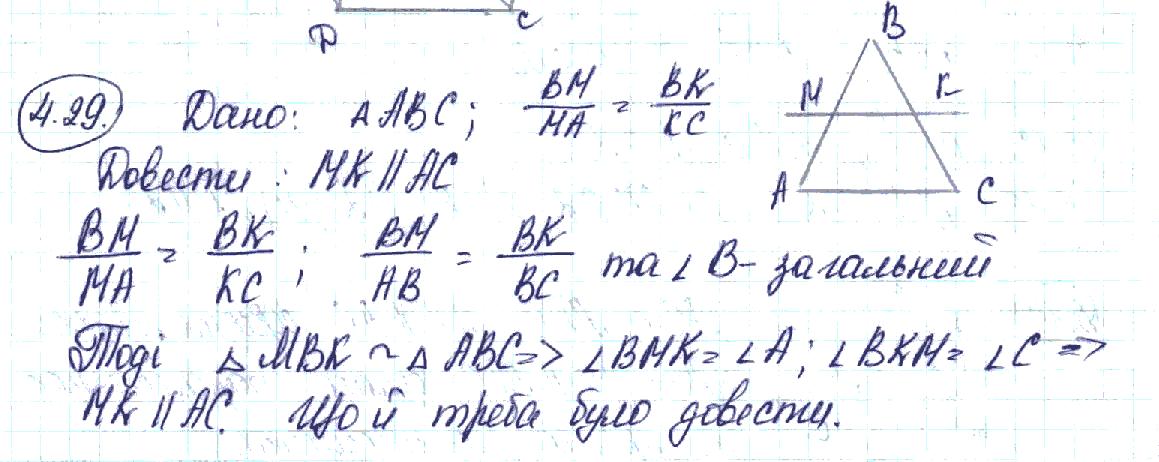 D C
4.29. Дано: △ ABC; BM/MA = BK/KC
B
M K
A C
Довести: MK || AC
BM/MA = BK/KC; BM/AB = BK/BC та ∠ B - загальний
Тоді △ MBK ~ △ ABC => ∠BMK = ∠A; ∠BKM = ∠C =>
MK || AC. Що й треба було довести.